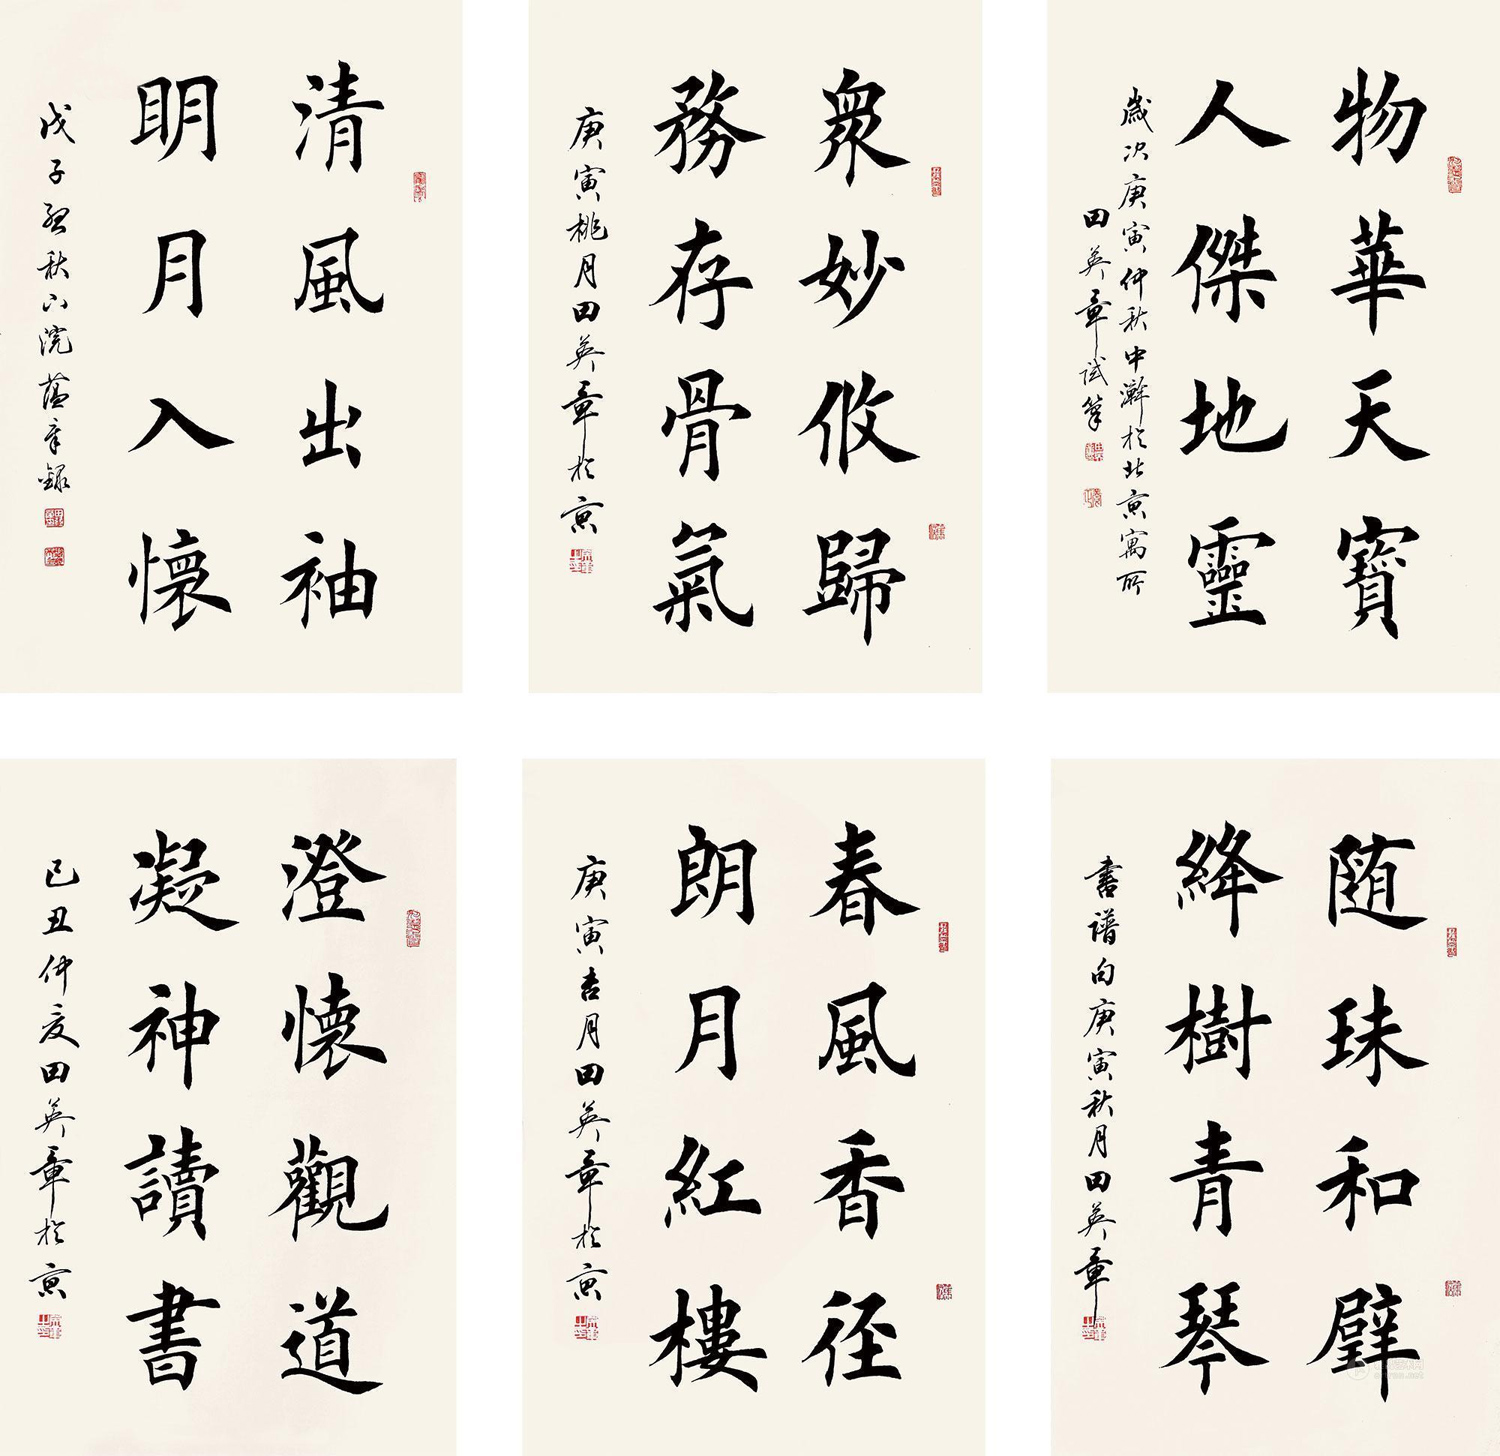 清風出袖
明月入懷
戊子孟秋下浣章錄
衆妙攸歸
務存骨氣
庚寅桃月田英章於京
物華天寶
人傑地靈
歲次庚寅仲秋中澣於北京寓所
田英章試筆
澄懷觀道
凝神讀書
己丑仲夏田英章於京
春風香径
朗月紅樓
庚寅吉月田英章於京
随珠和璧
絳樹青琴
書譜句庚寅秋月田英章